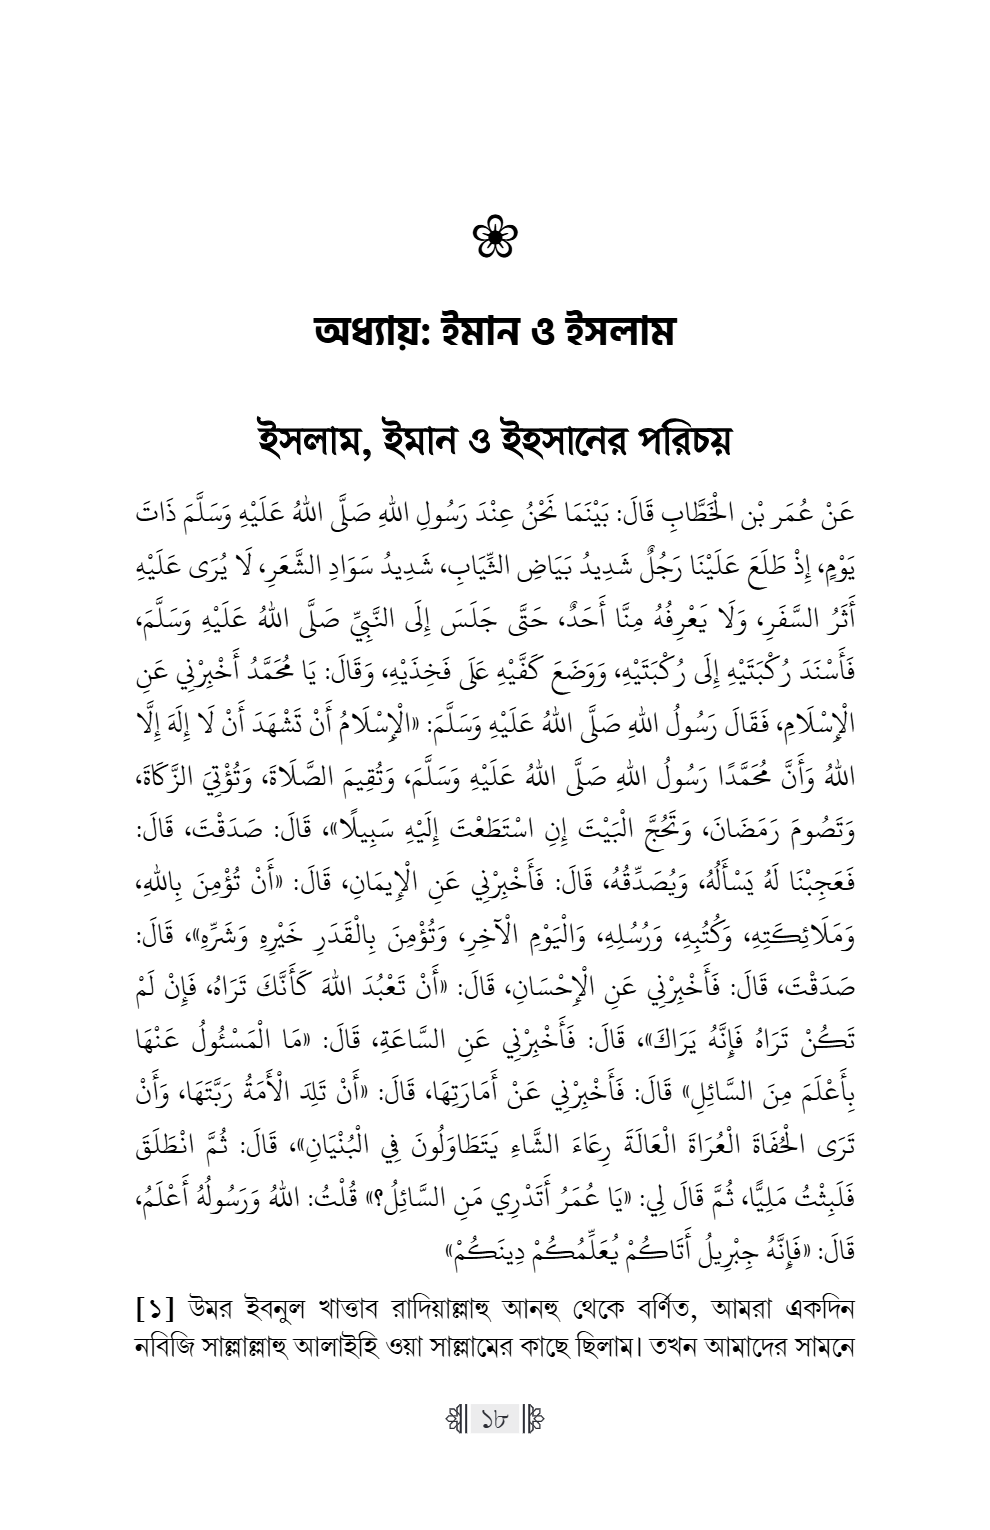 অধ্যায়: ইমান ও ইসলাম
ইসলাম, ইমান ও ইহসানের পরিচয়
عَنْ عُمَر بْن الْخَطَّابِ قَالَ: بَيْنَمَا نَحْنُ عِنْدَ رَسُولِ اللهِ صَلَّى اللهُ عَلَيْهِ وَسَلَّمَ ذَاتَ
يَوْمٍ، إِذْ طَلَعَ عَلَيْنَا رَجُلٌ شَدِيدُ بَيَاضِ الثِّيَابِ، شَدِيدُ سَوَادِ الشَّعَرِ، لَا يُرَى عَلَيْهِ
أَثَرُ السَّفَرِ، وَلَا يَعْرِفُهُ مِنَّا أَحَدٌ، حَتَّى جَلَسَ إِلَى النَّبِيِّ صَلَّى اللهُ عَلَيْهِ وَسَلَّمَ،
فَأَسْنَدَ رُكْبَتَيْهِ إِلَى رُكْبَتَيْهِ، وَوَضَعَ كَفَّيْهِ عَلَى فَخِذَيْهِ، وَقَالَ: يَا مُحَمَّدُ أَخْبِرْنِي عَنِ
الْإِسْلَامِ، فَقَالَ رَسُولُ اللهِ صَلَّى اللهُ عَلَيْهِ وَسَلَّمَ: «الْإِسْلَامُ أَنْ تَشْهَدَ أَنْ لَا إِلَهَ إِلَّا
اللهُ وَأَنَّ مُحَمَّدًا رَسُولُ اللهِ صَلَّى اللهُ عَلَيْهِ وَسَلَّمَ، وَتُقِيمَ الصَّلَاةَ، وَتُؤْتِيَ الزَّكَاةَ،
وَتَصُومَ رَمَضَانَ، وَتَحُجَّ الْبَيْتَ إِنِ اسْتَطَعْتَ إِلَيْهِ سَبِيلًا»، قَالَ: صَدَقْتَ، قَالَ:
فَعَجِبْنَا لَهُ يَسْأَلُهُ، وَيُصَدِّقُهُ، قَالَ: فَأَخْبِرْنِي عَنِ الْإِيمَانِ، قَالَ: «أَنْ تُؤْمِنَ بِاللهِ،
وَمَلَائِكَتِهِ، وَكُتُبِهِ، وَرُسُلِهِ، وَالْيَوْمِ الْآخِرِ، وَتُؤْمِنَ بِالْقَدَرِ خَيْرِهِ وَشَرِّهِ»، قَالَ:
صَدَقْتَ، قَالَ: فَأَخْبِرْنِي عَنِ الْإِحْسَانِ، قَالَ: «أَنْ تَعْبُدَ اللهَ كَأَنَّكَ تَرَاهُ، فَإِنْ لَمْ
تَكُنْ تَرَاهُ فَإِنَّهُ يَرَاكَ»، قَالَ: فَأَخْبِرْنِي عَنِ السَّاعَةِ، قَالَ: «مَا الْمَسْئُولُ عَنْهَا
بِأَعْلَمَ مِنَ السَّائِلِ» قَالَ: فَأَخْبِرْنِي عَنْ أَمَارَتِهَا، قَالَ: «أَنْ تَلِدَ الْأَمَةُ رَبَّتَهَا، وَأَنْ
تَرَى الْحُفَاةَ الْعُرَاةَ الْعَالَةَ رِعَاءَ الشَّاءِ يَتَطَاوَلُونَ فِي الْبُنْيَانِ»، قَالَ: ثُمَّ انْطَلَقَ
فَلَبِثْتُ مَلِيًّا، ثُمَّ قَالَ لِي: «يَا عُمَرُ أَتَدْرِي مَنِ السَّائِلُ؟» قُلْتُ: اللهُ وَرَسُولُهُ أَعْلَمُ،
قَالَ: «فَإِنَّهُ جِبْرِيلُ أَتَاكُمْ يُعَلِّمُكُمْ دِينَكُمْ»
[১] উমর ইবনুল খাত্তাব রাদিয়াল্লাহু আনহু থেকে বর্ণিত, আমরা একদিন
নবিজি সাল্লাল্লাহু আলাইহি ওয়া সাল্লামের কাছে ছিলাম। তখন আমাদের সামনে
১৮